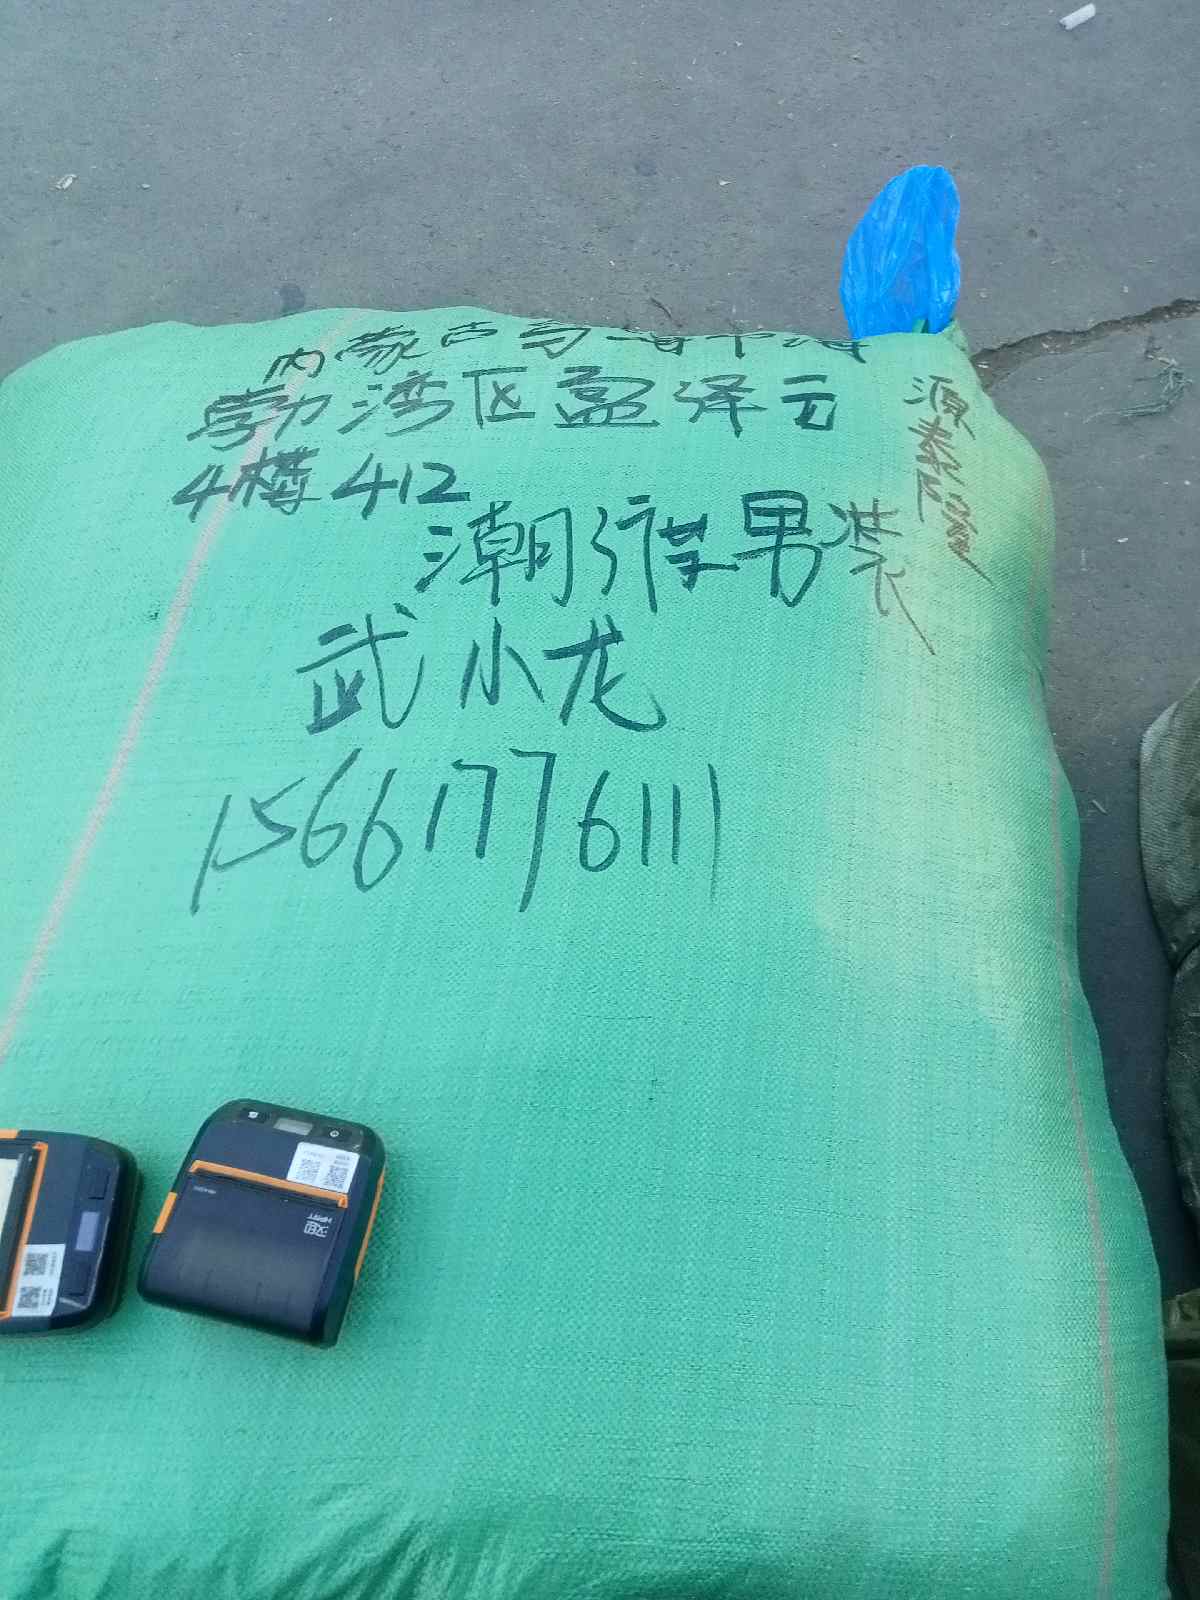 内蒙古乌海市海
勃湾区盈泽云
4楼412
潮行荟男装
武小龙
15661776111
源泰隆
HPRT 汉印